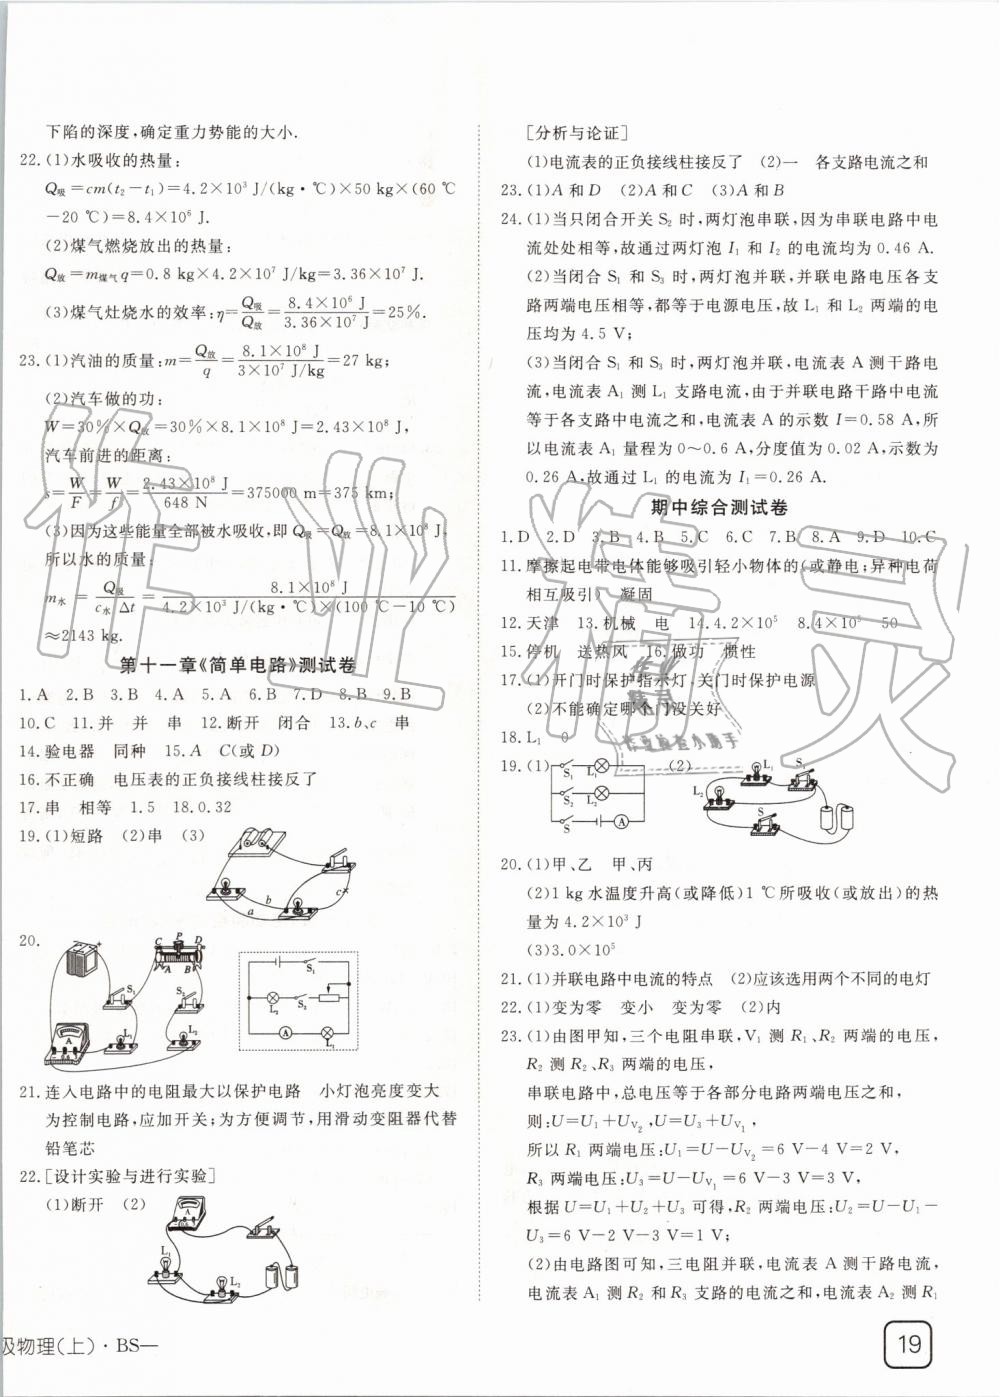 下陷的深度,确定重力势能的大小.
22.(1)水吸收的热量:
Q吸=cm(t₂-t₁)=4.2×10³ J/(kg·℃)×50 kg×(60 ℃
-20 ℃)=8.4×10⁶ J.
(2)煤气燃烧放出的热量:
Q放=m煤气q=0.8 kg×4.2×10⁷ J/kg=3.36×10⁷ J.
(3)煤气灶烧水的效率:η=Q吸/Q放=8.4×10⁶ J/3.36×10⁷ J=25%.
23.(1)汽油的质量:m=Q放/q=8.1×10⁸ J/3×10⁷ J/kg=27 kg;
(2)汽车做的功:
W=30%×Q放=30%×8.1×10⁸ J=2.43×10⁸ J,
汽车前进的距离:
s=W/F=W/f=2.43×10⁸ J/648 N=375000 m=375 km;
(3)因为这些能量全部被水吸收,即Q吸=Q放=8.1×10⁸ J,
所以水的质量:
m水=Q吸/c水Δt=8.1×10⁸ J/4.2×10³ J/(kg·℃)×(100 ℃-10 ℃)
≈2143 kg.
第十一章《简单电路》测试卷
1.A 2.B 3.B 4.A 5.A 6.B 7.D 8.B 9.B
10.C 11.并 并 串 12.断开 闭合 13.b、c 串
14.验电器 同种 15.A C(或D)
16.不正确 电压表的正负接线柱接反了
17.串 相等 1.5 18.0.32
19.(1)短路 (2)串 (3)
a b c
20.
C P D
A B
S₁
S₂
L₁
L₂
A
S₁
L₂ S₂
A L₁
21.连入电路中的电阻最大以保护电路 小灯泡亮度变大
为控制电路,应加开关;为方便调节,用滑动变阻器代替
铅笔芯
22.[设计实验与进行实验]
(1)断开 (2)
A
L₁
L₂
级物理(上)·BS—
[分析与论证]
(1)电流表的正负接线柱接反了 (2)一 各支路电流之和
23.(1)A和D (2)A和C (3)A和B
24.(1)当只闭合开关S₂时,两灯泡串联,因为串联电路中电
流处处相等,故通过两灯泡I₁和I₂的电流均为0.46 A.
(2)当闭合S₁和S₃时,两灯泡并联,并联电路电压各支
路两端电压相等,都等于电源电压,故L₁和L₂两端的电
压均为4.5 V;
(3)当闭合S₁和S₃时,两灯泡并联,电流表A测干路电
流,电流表A₁测L₁支路电流,由于并联电路干路中电流
等于各支路中电流之和,电流表A的示数I=0.58 A,所
以电流表A₁量程为0~0.6 A,分度值为0.02 A,示数为
0.26 A,故通过L₁的电流为I₁=0.26 A.
期中综合测试卷
1.D 2.D 3.B 4.B 5.C 6.C 7.B 8.A 9.D 10.C
11.摩擦起电带电体能够吸引轻小物体的(或静电;异种电荷
相互吸引) 凝固
12.天津 13.机械 电 14.4.2×10⁵ 8.4×10⁵ 50
15.停机 送热风 16.做功 惯性
17.(1)开门时保护指示灯,关门时保护电源
(2)不能确定哪个门没关好
18.L₁ 0
19.(1) (2)
S₁ L₁
S₂ L₂
S A
L₁ S₁
L₂
S
20.(1)甲、乙 甲、丙
(2)1 kg水温度升高(或降低)1 ℃所吸收(或放出)的热
量为4.2×10³ J
(3)3.0×10⁵
21.(1)并联电路中电流的特点 (2)应该选用两个不同的电灯
22.(1)变为零 变小 变为零 (2)内
23.(1)由图甲知,三个电阻串联,V₁测R₁、R₂两端的电压,
R₂测R₂、R₃两端的电压,
串联电路中,总电压等于各部分电路两端电压之和,
则:U=U₁+U_V₂,U=U₃+U_V₁,
所以R₁两端电压:U₁=U-U_V₂=6 V-4 V=2 V,
R₃两端电压:U₃=U-U_V₁=6 V-3 V=3 V,
根据U=U₁+U₂+U₃可得,R₂两端电压:U₂=U-U₁-
U₃=6 V-2 V-3 V=1 V;
(2)由电路图可知,三电阻并联,电流表A测干路电流,
电流表A₁测R₂和R₃支路的电流之和,电流表A₂测R₁
19
作业精灵